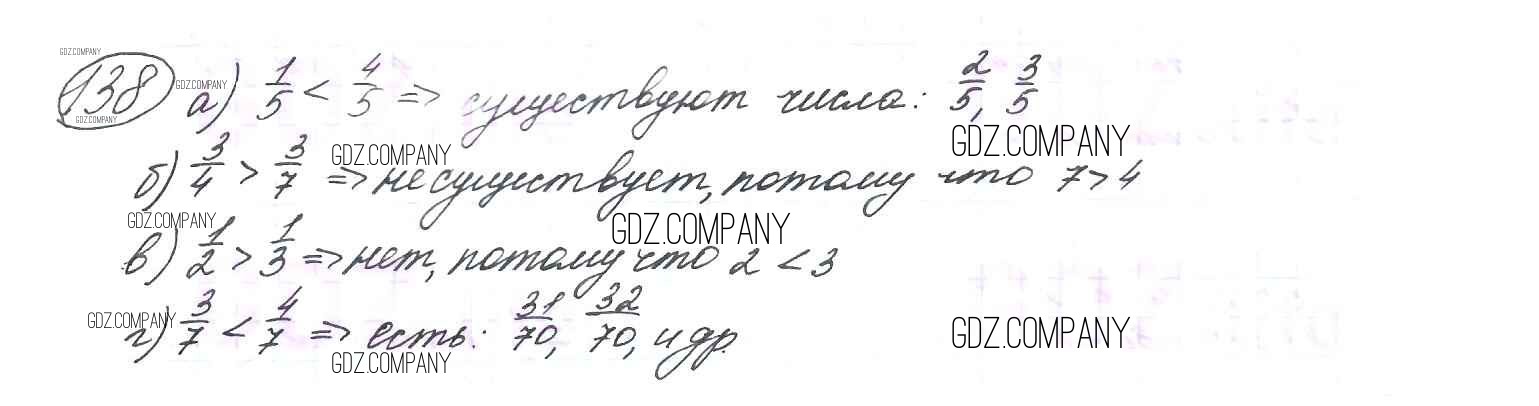 GDZ.COMPANY
138 а) 1/5 < 4/5 => существуют числа: 2/5, 3/5
GDZ.COMPANY
GDZ.COMPANY
GDZ.COMPANY
GDZ.COMPANY
б) 3/4 > 3/7 => не существует, потому что 7 > 4
GDZ.COMPANY
GDZ.COMPANY
в) 1/2 > 1/3 => нет, потому что 2 < 3
GDZ.COMPANY
GDZ.COMPANY
г) 3/7 < 4/7 => есть: 31/70, 32/70, и др.
GDZ.COMPANY